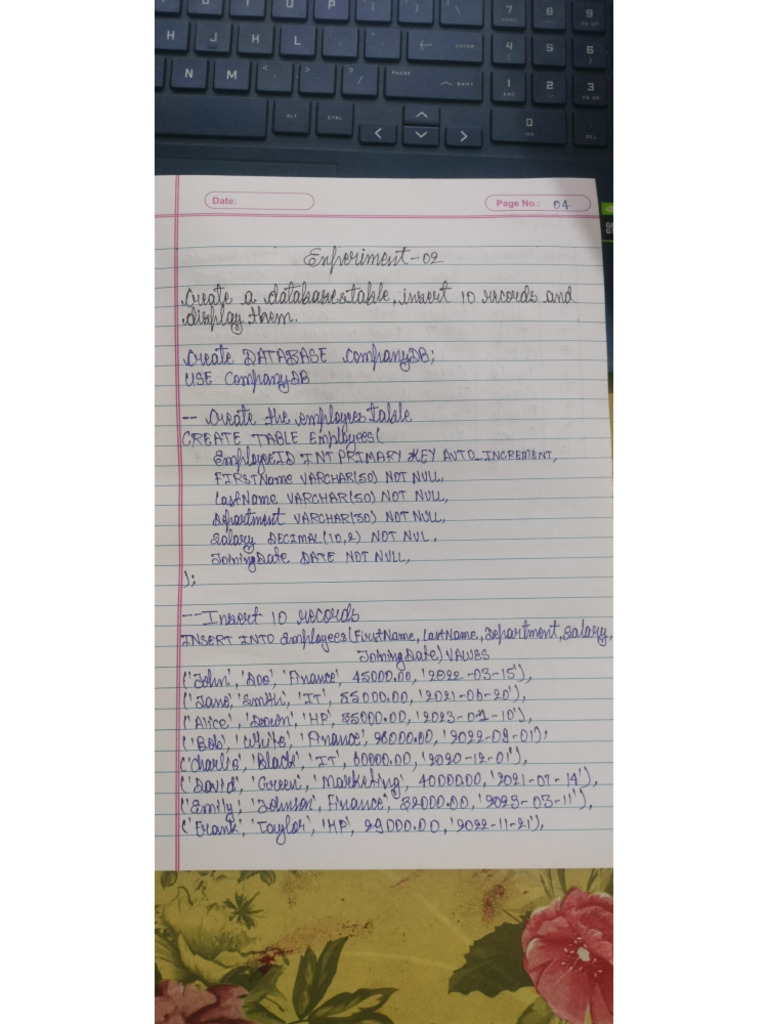 7 8 9
H J K L : ; " ' ENTER 4 5 6
N M < , > . ? / PAUSE SHIFT 1 2 3
ALT CTRL 0
Date:
Page No.: 04
Experiment-02
Create a database & table, insert 10 records and
display them.
Create DATABASE CompanyDB;
USE CompanyDB
-- Create the employees table
CREATE TABLE Employees(
EmployeeID INT PRIMARY KEY AUTO_INCREMENT,
FIRSTName VARCHAR(50) NOT NULL,
LastName VARCHAR(50) NOT NULL,
Department VARCHAR(30) NOT NULL,
Salary DECIMAL(10,2) NOT NUL,
JoiningDate DATE NOT NULL,
);
-- Insert 10 records
INSERT INTO Employees(FirstName, LastName, Department, Salary,
JoiningDate) VALUES
('John', 'Doe', 'Finance', 45000.00, '2022-03-15'),
('Jane', 'Smith', 'IT', 55000.00, '2021-06-20'),
('Alice', 'Down', 'HP', 35000.00, '2023-01-10'),
('Bob', 'White', 'Finance', 28000.00, '2022-08-01');
('Charlie', 'Black', 'IT', 60000.00, '2020-12-01'),
('David', 'Green', 'Marketing', 40000.00, '2021-07-14'),
('Emily', 'Johnson', Finance', 32000.00, '2023-03-11'),
('Frank', 'Taylor', 'HP', 29000.00, '2022-11-21'),